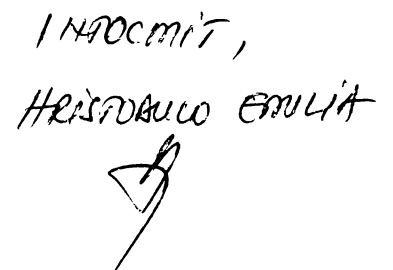 INTOCMIT,
HRISTODULO EMILIA